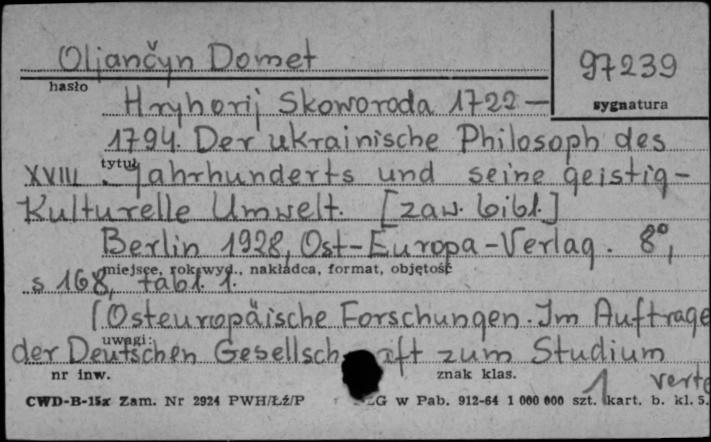 Oljančyn Domet
97239
hasło
sygnatura
Hryhorij Skoworoda 1722 –
1794. Der ukrainische Philosoph des
tytuł
XVIII. Jahrhunderts und seine geistig-
Kulturelle Umwelt. [zaw. bibl.]
Berlin 1928, Ost-Europa-Verlag. 8°,
miejsce, rok wyd., nakładca, format, objętość
s 168, tabl. 1.
(Osteuropäische Forschungen. Im Auftrage
uwagi:
der Deutschen Gesellschaft zum Studium
nr inw.
znak klas.
1 verte
CWD-B-15x Zam. Nr 2924 PWH/ŁŹ/P G w Pab. 912-64 1 000 000 szt. kart. b. kl. 5.